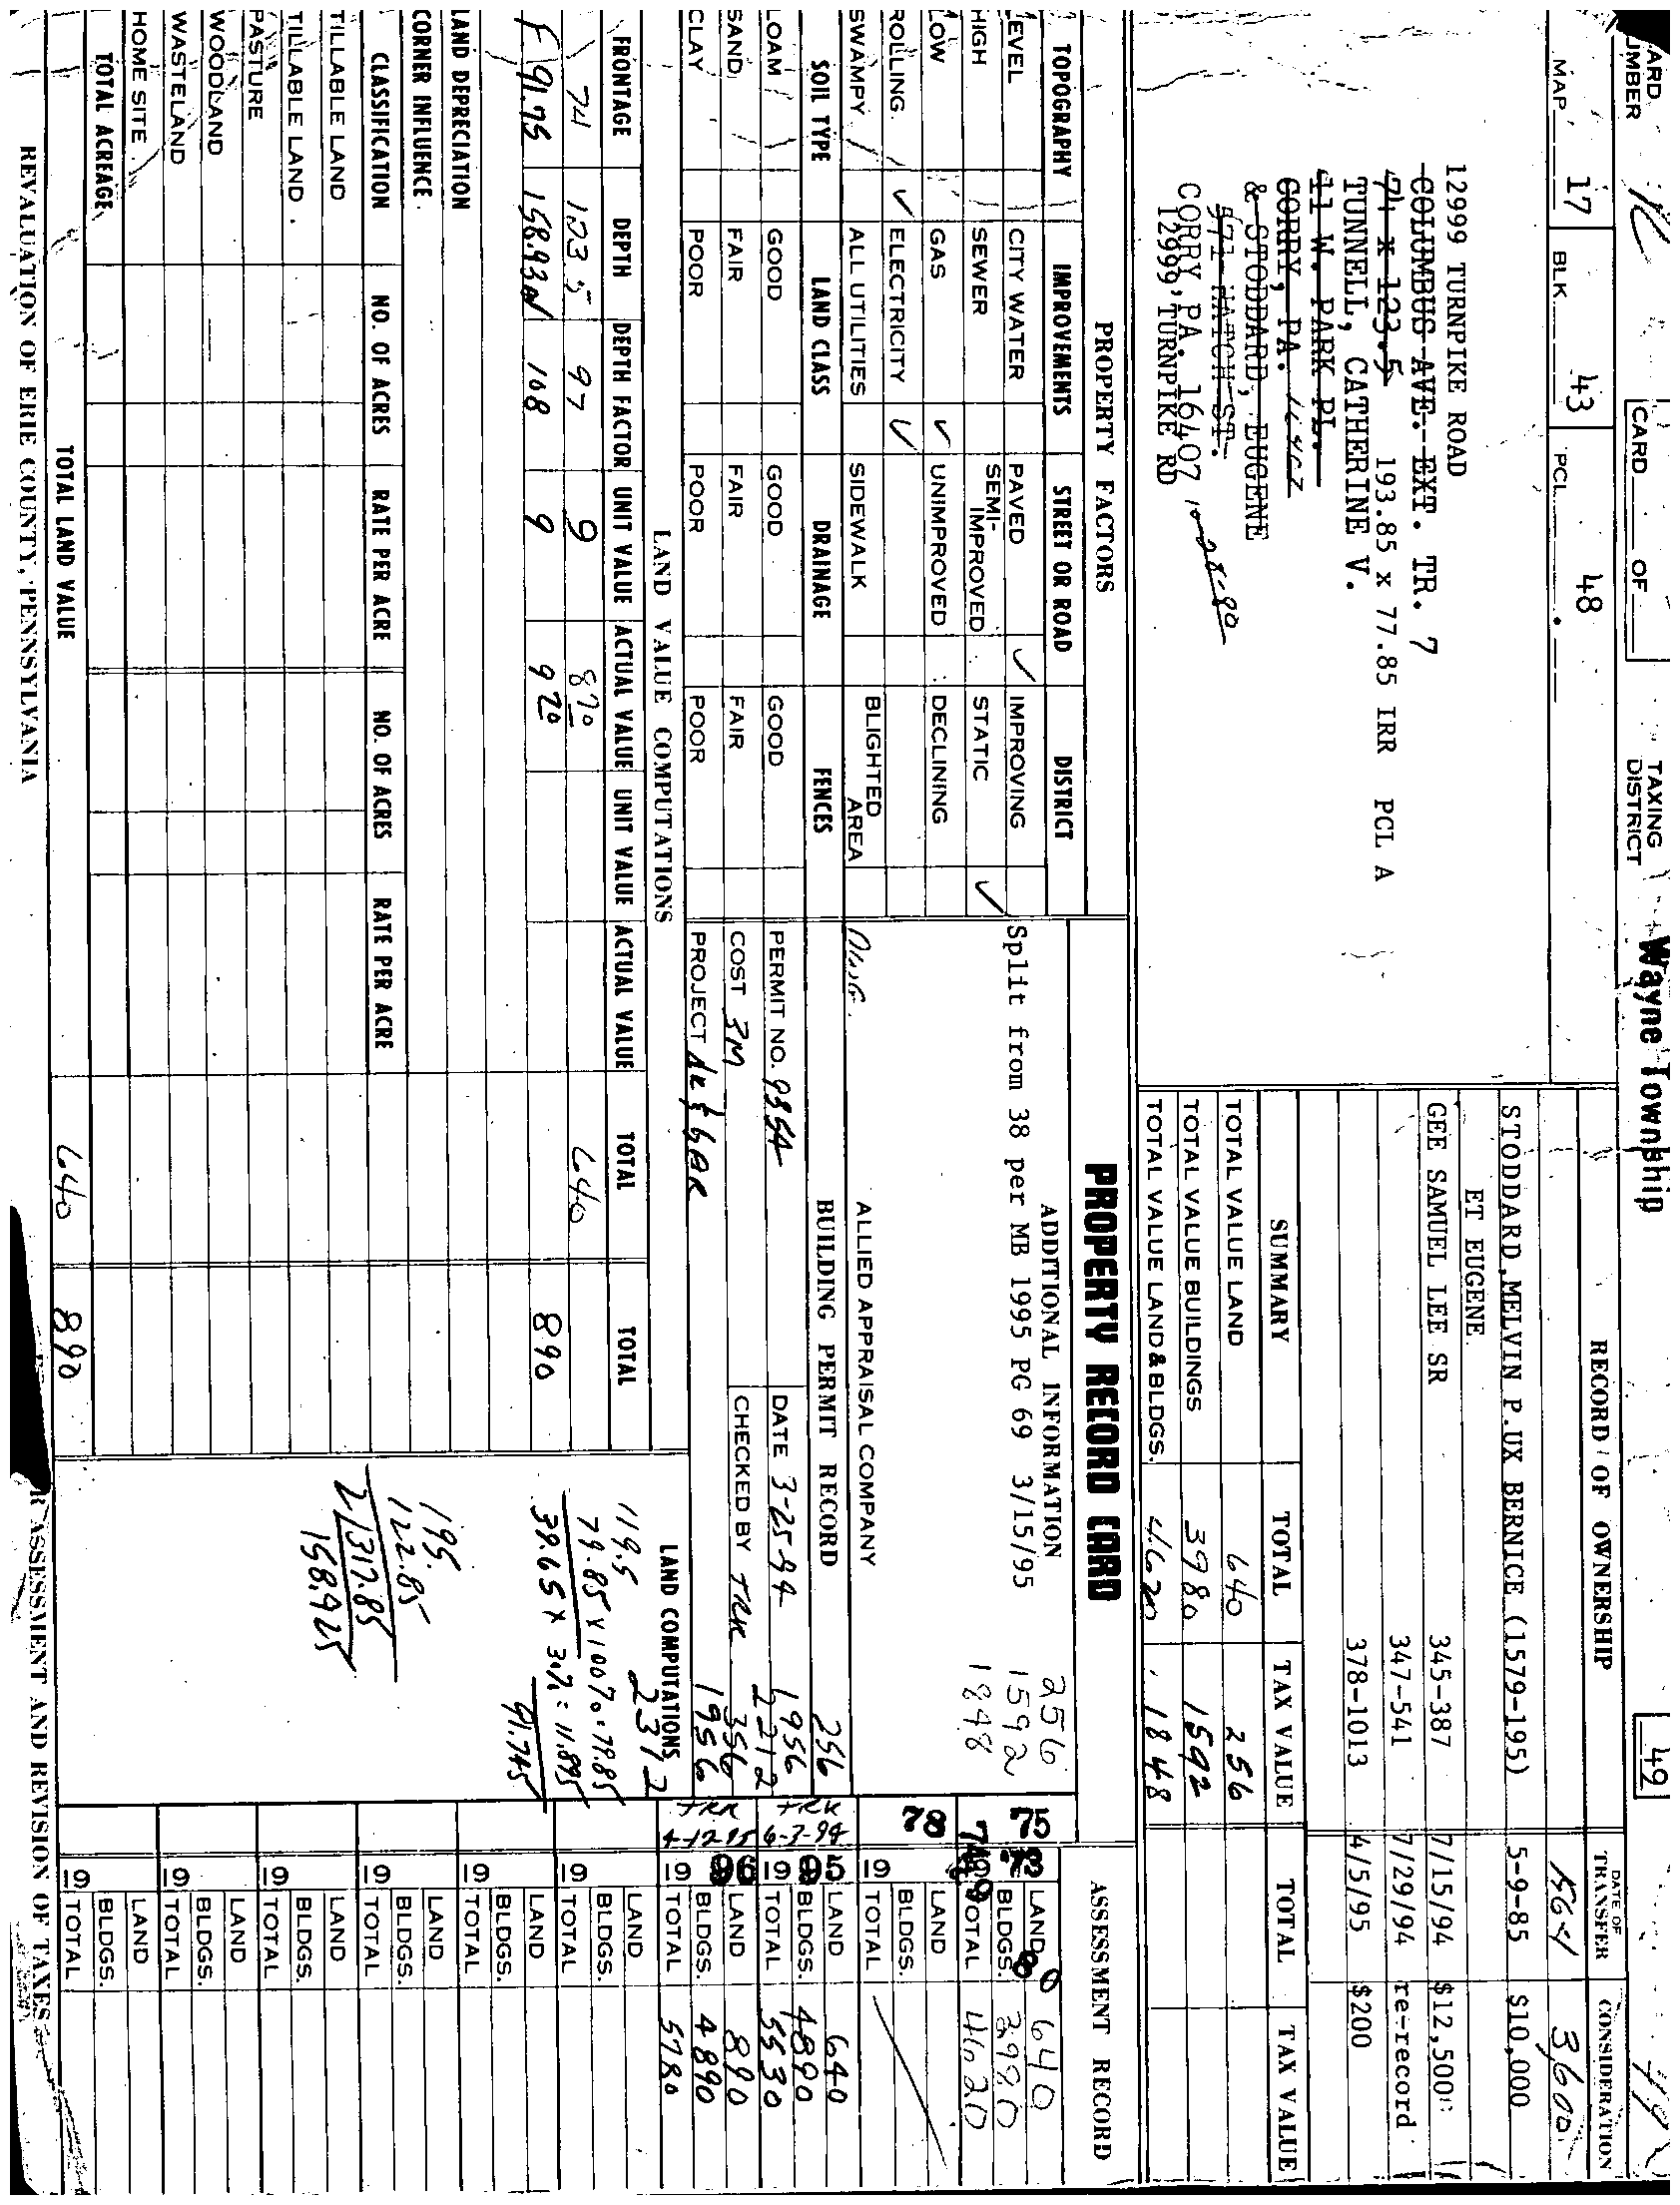 CARD NUMBER
CARD OF
TAXING DISTRICT Wayne Township
49
MAP 17 BLK. 43 PCL. 48
12999 TURNPIKE ROAD
COLUMBUS AVE. EXT. TR. 7
74 x 123.5 193.85 x 77.85 IRR PCL A
TUNNELL, CATHERINE V.
11 W. PARK PL.
CORRY, PA. 16407
& STODDARD, EUGENE
571 HATCH ST.
CORRY, PA. 16407 10-28-80
12999 TURNPIKE RD
RECORD OF OWNERSHIP DATE OF TRANSFER CONSIDERATION
3,600
STODDARD, MELVIN P.UX BERNICE (1579-195) 5-9-85 $10,000
ET EUGENE
GEE SAMUEL LEE SR 345-387 7/15/94 $12,500
347-541 7/29/94 re-record
378-1013 4/5/95 $200
SUMMARY TOTAL TAX VALUE TOTAL TAX VALUE
TOTAL VALUE LAND 640 256
TOTAL VALUE BUILDINGS 3980 1592
TOTAL VALUE LAND & BLDGS. 4620 1848
PROPERTY RECORD CARD
PROPERTY FACTORS
TOPOGRAPHY IMPROVEMENTS STREET OR ROAD DISTRICT
LEVEL CITY WATER PAVED ✓ IMPROVING
HIGH SEWER SEMI-IMPROVED STATIC ✓
LOW GAS ✓ UNIMPROVED DECLINING
ROLLING ✓ ELECTRICITY ✓
SWAMPY ALL UTILITIES SIDEWALK BLIGHTED AREA
SOIL TYPE LAND CLASS DRAINAGE FENCES
LOAM GOOD GOOD GOOD
SAND FAIR FAIR FAIR
CLAY POOR POOR POOR
ADDITIONAL INFORMATION
Split from 38 per MB 1995 PG 69 3/15/95
256
1592
1848
ALLIED APPRAISAL COMPANY
BUILDING PERMIT RECORD
PERMIT NO. 9354 DATE 3-25-94
COST 3M CHECKED BY TRK
PROJECT
256
1956
2212
356
1956
2312
LAND VALUE COMPUTATIONS
FRONTAGE DEPTH DEPTH FACTOR UNIT VALUE ACTUAL VALUE UNIT VALUE ACTUAL VALUE TOTAL TOTAL
74 123.5 97 9 870 640
F 91.75 158.93 108 9 970 890
LAND DEPRECIATION
CORNER INFLUENCE
CLASSIFICATION NO. OF ACRES RATE PER ACRE NO. OF ACRES RATE PER ACRE
TILLABLE LAND
TILLABLE LAND
PASTURE
WOODLAND
WASTELAND
HOME SITE
TOTAL ACREAGE
TOTAL LAND VALUE 640 890
LAND COMPUTATIONS
119.5
79.85 x 100% = 79.85
39.65 x 30% = 11.895
91.745
195.
122.85
2/317.85
158.925
ASSESSMENT RECORD
75 73 LAND 80 640
BLDGS. 3980
74 TOTAL 4620
78 LAND
BLDGS.
19 TOTAL
TRK 6-3-94
LAND 640
BLDGS. 4890
19 95 TOTAL 5530
TRK 4-12-95
LAND 890
BLDGS. 4890
19 96 TOTAL 5780
LAND
BLDGS.
19 TOTAL
LAND
BLDGS.
19 TOTAL
LAND
BLDGS.
19 TOTAL
LAND
BLDGS.
19 TOTAL
LAND
BLDGS.
19 TOTAL
LAND
BLDGS.
19 TOTAL
REVALUATION OF ERIE COUNTY, PENNSYLVANIA
ASSESSMENT AND REVISION OF TAXES